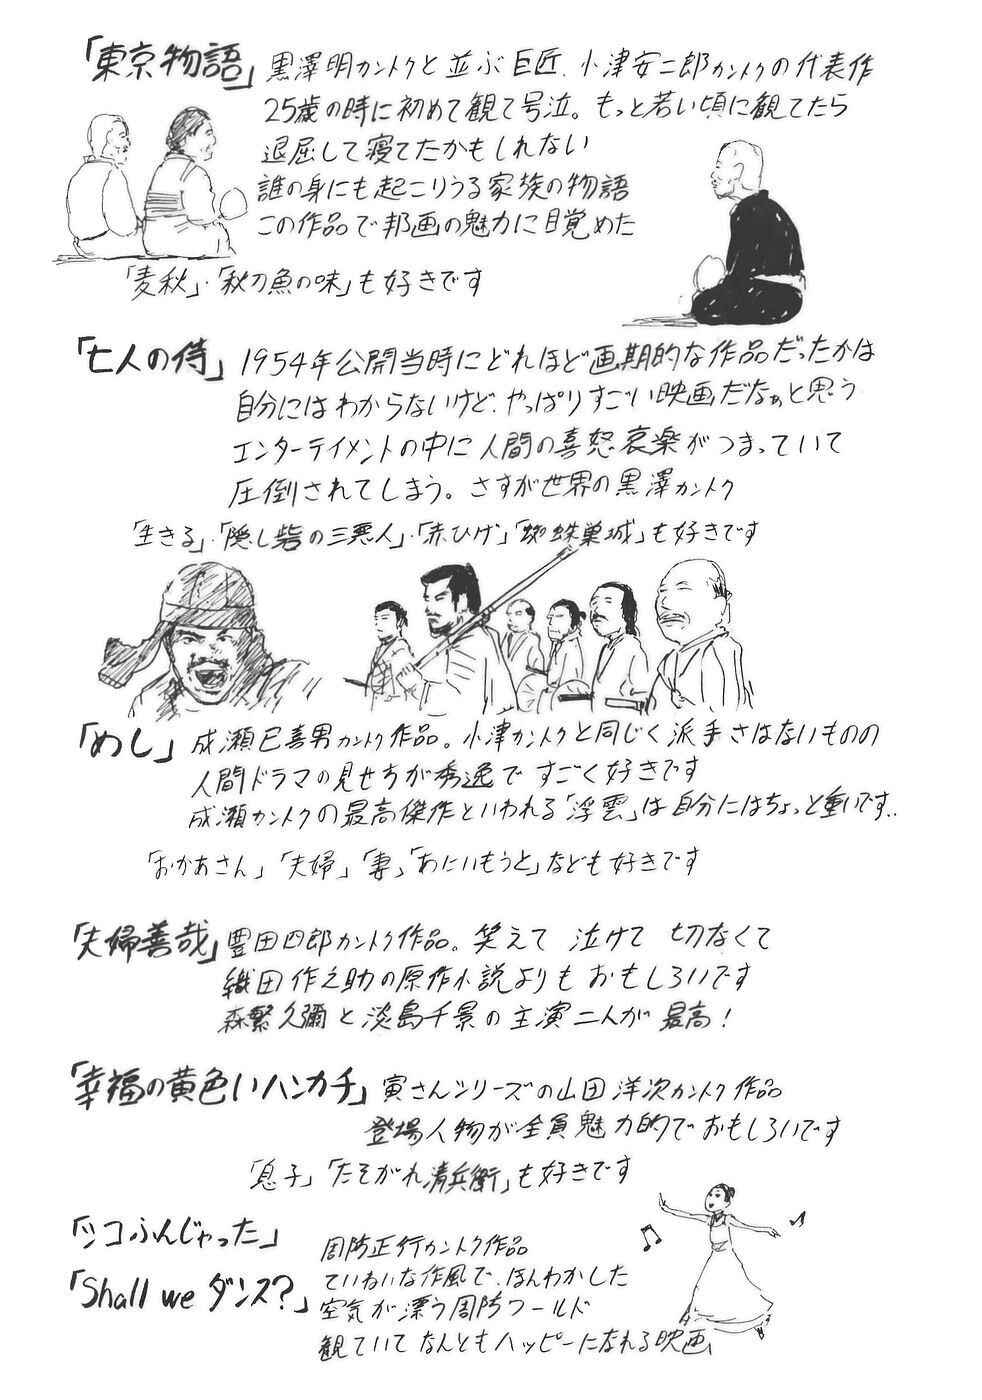 「東京物語」黒澤明カントクと並ぶ巨匠、小津安二郎カントクの代表作
25歳の時に初めて観て号泣。もっと若い頃に観てたら
退屈して寝てたかもしれない
誰の身にも起こりうる家族の物語
この作品で邦画の魅力に目覚めた
「麦秋」・「秋刀魚の味」も好きです
「七人の侍」1954年公開当時にどれほど画期的な作品だったかは
自分にはわからないけど、やっぱりすごい映画だなぁと思う
エンターテイメントの中に人間の喜怒哀楽がつまっていて
圧倒されてしまう。さすが世界の黒澤カントク
「生きる」・「隠し砦の三悪人」・「赤ひげ」「蜘蛛巣城」も好きです
「めし」成瀬巳喜男カントク作品。小津カントクと同じく派手さはないものの
人間ドラマの見せ方が秀逸ですごく好きです
成瀬カントクの最高傑作といわれる「浮雲」は自分にはちょっと重いです..
「おかあさん」「夫婦」「妻」「あにいもうと」なども好きです
「夫婦善哉」豊田四郎カントク作品。笑えて 泣けて 切なくて
織田作之助の原作小説よりもおもしろいです
森繁久彌と淡島千景の主演二人が最高!
「幸福の黄色いハンカチ」寅さんシリーズの山田洋次カントク作品
登場人物が全員魅力的でおもしろいです
「息子」「たそがれ清兵衛」も好きです
「シコふんじゃった」
「Shall we ダンス?」
周防正行カントク作品
ていねいな作風で、ほんわかした
空気が漂う周防ワールド
観ていてなんともハッピーになれる映画